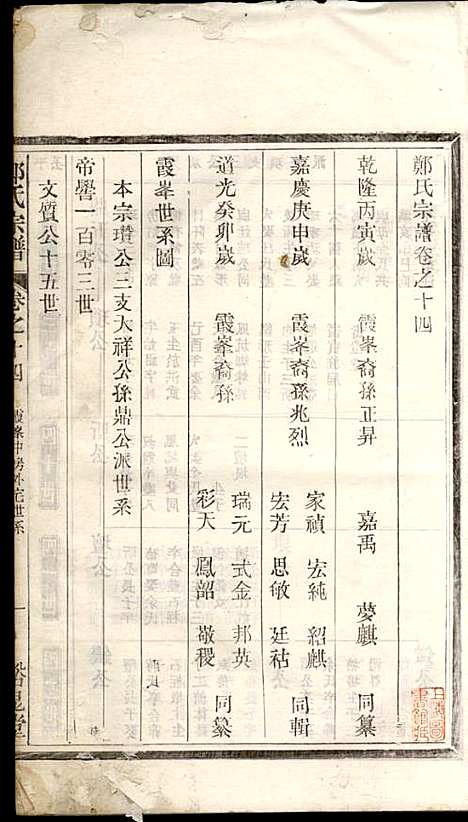 鄭氏宗譜卷之十四
乾隆丙寅歲 霞峯裔孫正昇 嘉禹 夢麒 同纂
嘉慶庚申歲 霞峯裔孫兆烈 家禎 宏純 紹麒 宏芳 思敏 廷祜 同輯
道光癸卯歲 霞峯裔孫 瑞元 式金 邦英 彩天 鳳韶 敬稷 同纂
霞峯世系圖
本宗瓚公三支大祥公孫鼎公派世系
帝嚳一百零三世
文質公十五世
鄭氏宗譜 卷之十四 霞峯中房外宅世系 一